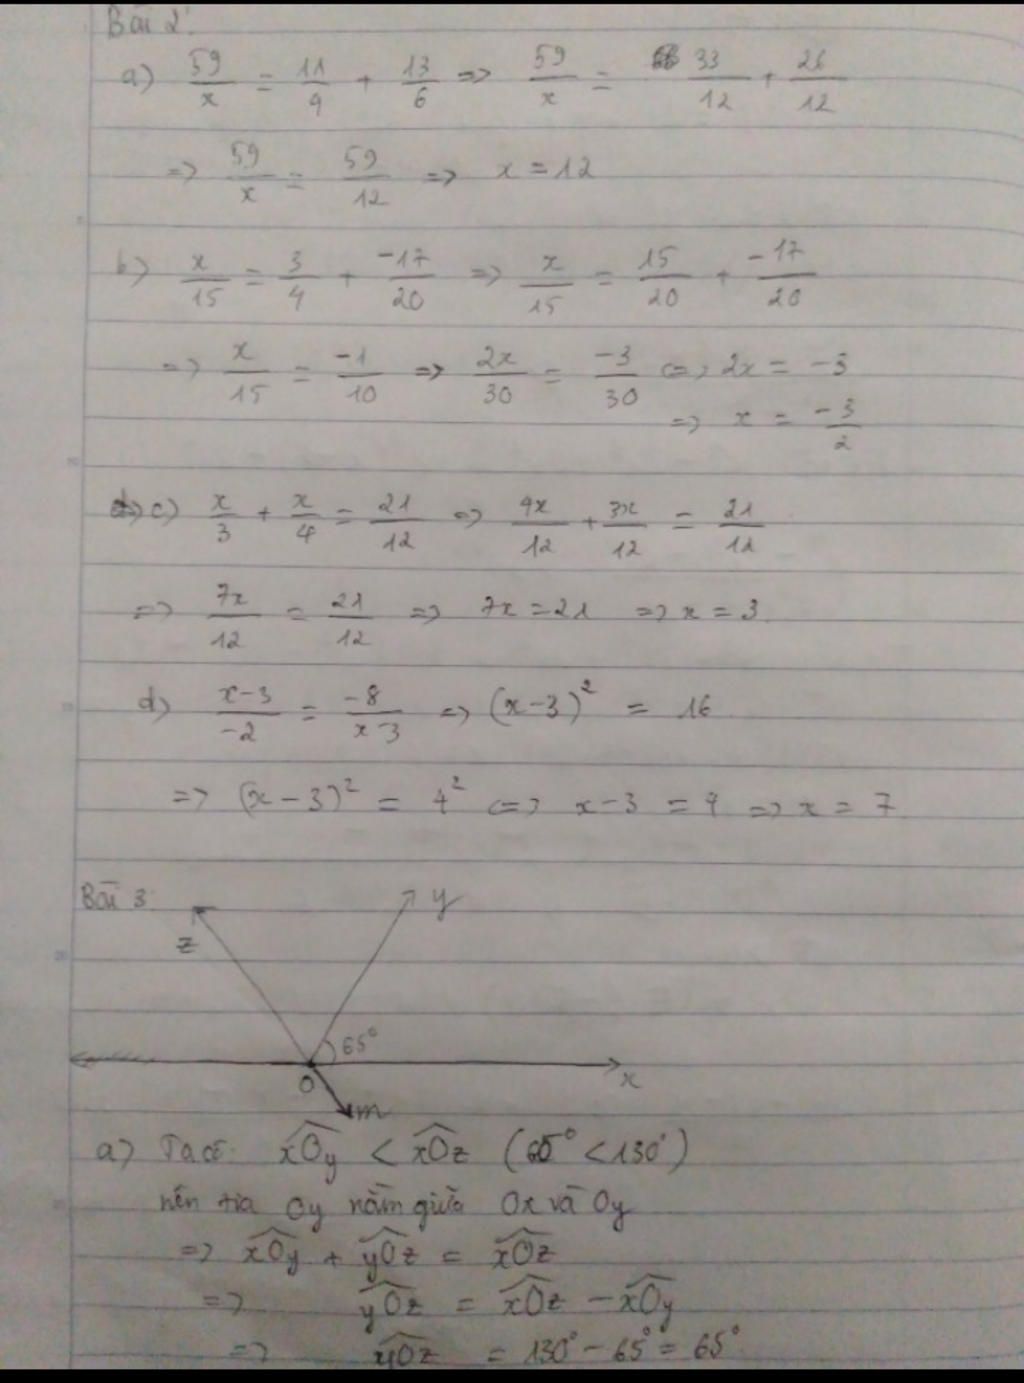 Bài 2:
a) 59/x = 11/4 + 13/6 => 59/x = 33/12 + 26/12
=> 59/x = 59/12 => x = 12
b) x/15 = 3/4 + -17/20 => x/15 = 15/20 + -17/20
=> x/15 = -1/10 => 2x/30 = -3/30 <=> 2x = -3
=> x = -3/2
c) x/3 + x/4 = 21/12 => 4x/12 + 3x/12 = 21/12
=> 7x/12 = 21/12 => 7x = 21 => x = 3
d) x-3/-2 = -8/x-3 => (x-3)² = 16
=> (x-3)² = 4² <=> x-3 = 4 => x = 7
Bài 3:
y
z
65°
O
x
m
a) Ta có: xOy < xOz (65° < 130°)
nên tia Oy nằm giữa Ox và Oy
=> xOy + yOz = xOz
=> yOz = xOz - xOy
=> yOz = 130° - 65° = 65°